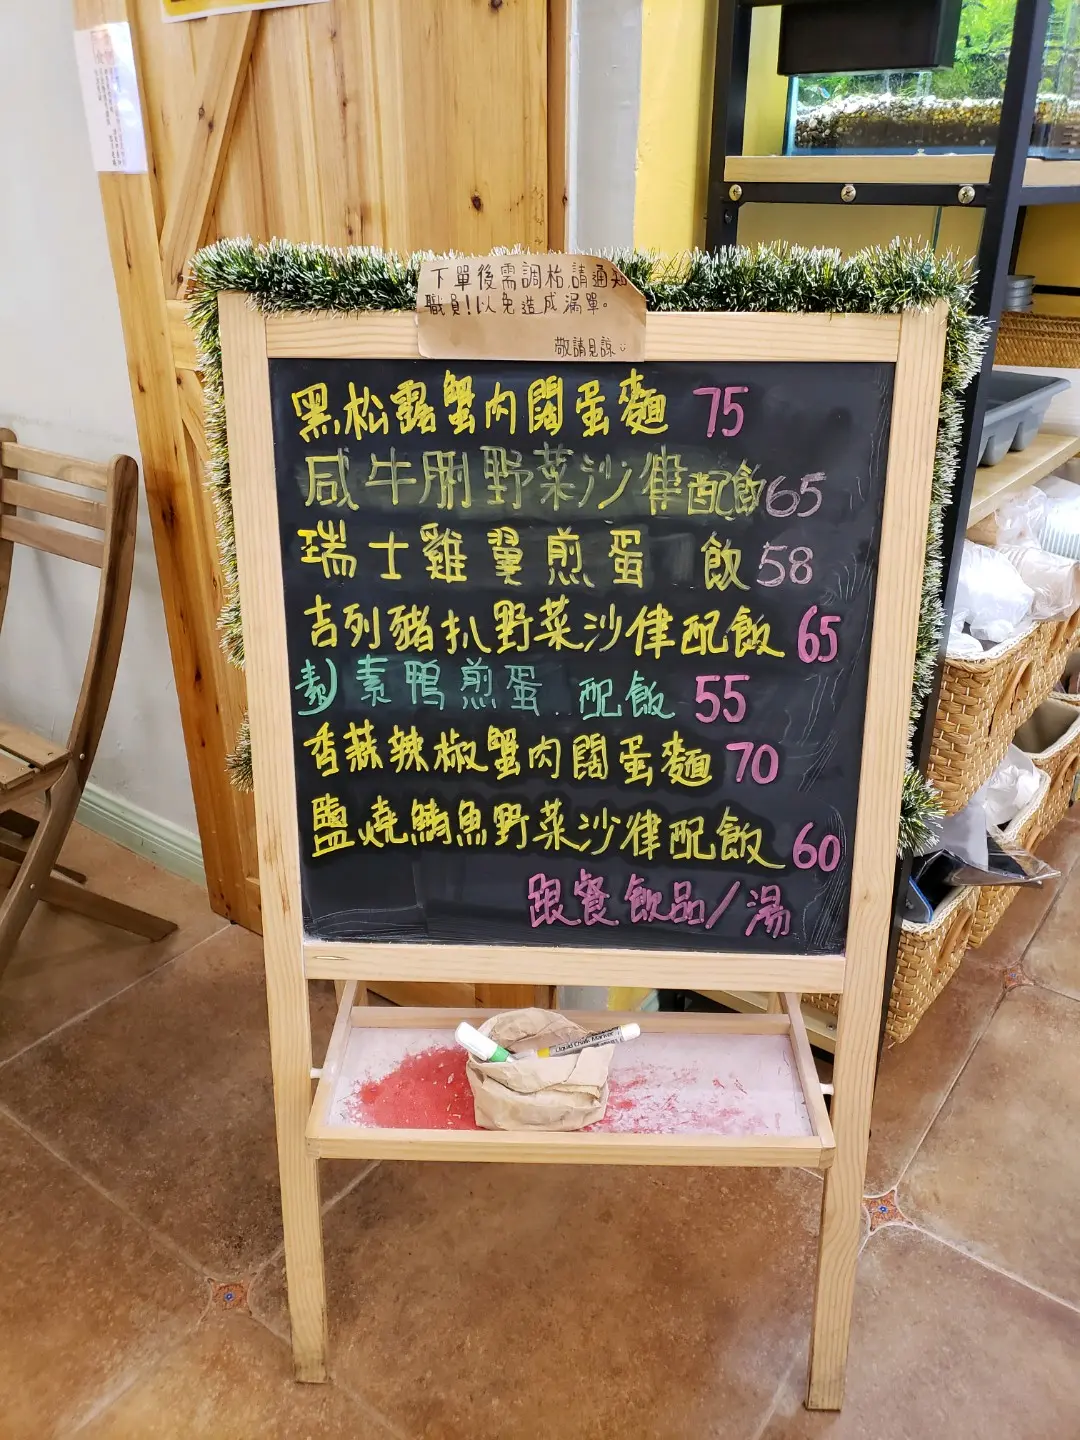 下單後需調枱請通知
職員!!以免造成漏單。
敬請見諒
黑松露蟹肉闊蛋麵 75
咸牛脷野菜沙律配飯 65
瑞士雞翼煎蛋 飯 58
吉列豬扒野菜沙律配飯 65
素)素鴨煎蛋 配飯 55
香蒜辣椒蟹肉闊蛋麵 70
鹽燒鯖魚野菜沙律配飯 60
跟餐飲品/湯
Liquid Chalk Marker